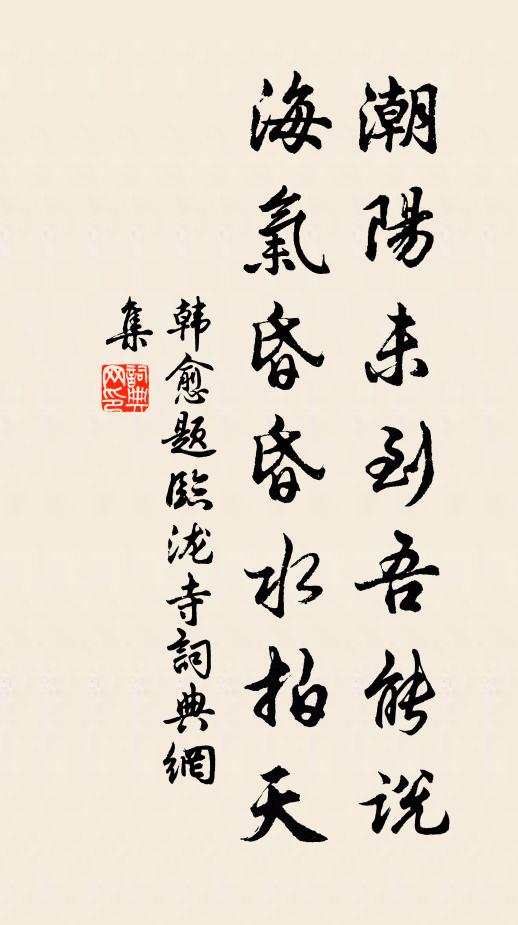 潮陽未到吾能說
海氣昏昏水拍天
韩愈题臨泷寺詞典網
集
詞典
网印